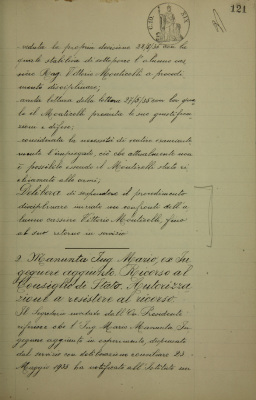 121
- veduta la propria decisione 22/5/35 con la
quale stabiliva di sottoporre l'alunno cas
siere Rag. Vittorio Monticelli a procedi
mento disciplinare;
- avuta lettura della lettera 27/5/35 con la qua
le il Monticelli presenta le sue giustifica
zioni e difese;
- considerata la necessità di sentire
mente l'impiegato, ciò che attualmente non
è possibile essendo il Monticelli stato ri
chiamato alle armi;
Delibera di sospendere il procedimento
disciplinare iniziato nei confronti dell'a
lunno cassiere Vittorio Monticelli fino
al suo ritorno in servizio
2. Manunta Ing. Mario, ex In
gegnere aggiunto. Ricorso al
Consiglio di Stato. Autorizza
zione a resistere al ricorso.
Il Segretario invitato dall'On. Presidente
riferisce che l'Ing. Mario Manunta In
gegnere aggiunto in esperimento, dispensato
dal servizio con deliberazione consiliare 23
Maggio 1935 ha notificato all'Istituto un